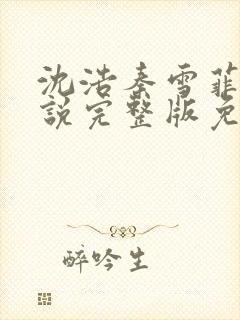 沈浩秦雪菲
說完整版免
醉吟生